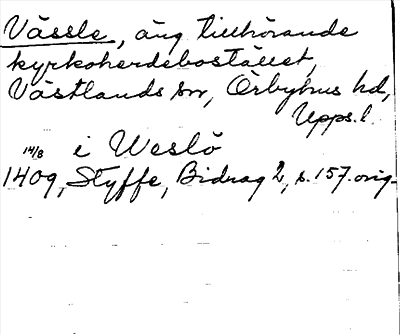 Vässle, äng tillhörande
kyrkoherdebostället,
Västlands sn, Örbyhus hd,
Upps. l.
14/8 i Weslö
1409, Styffe, Bidrag 2, s. 157. orig.